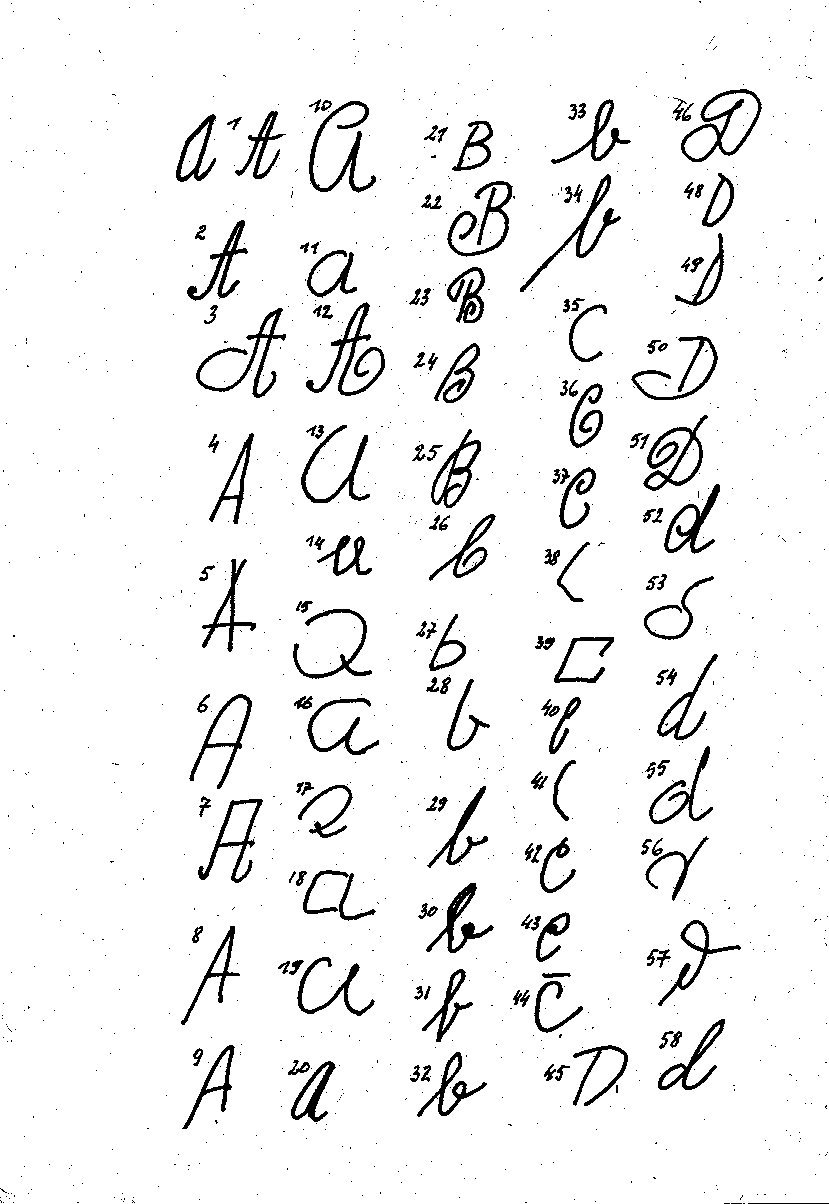 a 1 A
2 A
3 A
4 A
5 A
6 A
7 A
8 A
9 A
10 a
11 a
12 A
13 a
14 a
15 a
16 a
17 a
18 a
19 a
20 a
21 B
22 B
23 B
24 B
25 B
26 b
27 b
28 b
29 b
30 b
31 b
32 b
33 b
34 b
35 C
36 C
37 C
38 C
39 C
40 C
41 C
42 C
43 C
44 C̅
45 D
46 D
48 D
49 D
50 D
51 D
52 d
53 d
54 d
55 d
56 d
57 d
58 d